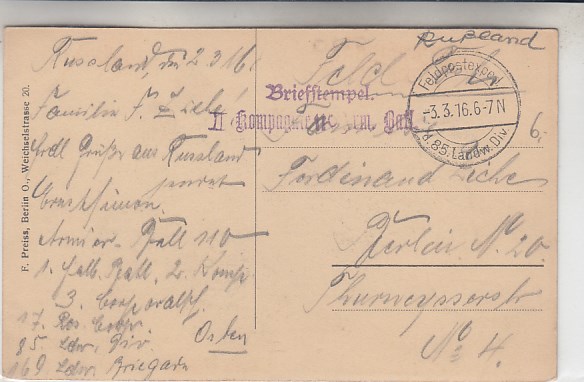 F. Preiss, Berlin O., Weichselstrasse 20.
Russland, den 2.3.16
Familie F. Ziche!
Grüße aus Russland
sendet
Armier. Batl 110
1. halb Batl. 2. Komp.
3. Corporalsch.
17. Res. Corps.
85. Ldw. Div.
169 Ldw. Briegade
Osten
Rußland
Feld
Briefstempel.
II. Kompagnie Arm. Batl.
Feldpostexped.
-3.3.16.6-7N
d. 85. Landw. Div.
6.
Ferdinand Ziche
Berlin No. 20
Thurneysserstr
No 4.